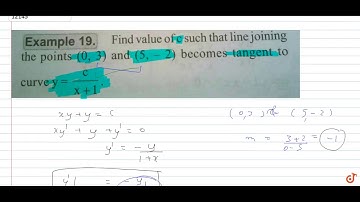 12145
Example 19. Find value of c such that line joining
the points (0, 3) and (5, – 2) becomes tangent to
curve y = c / x + 1
xy + y = c
xy' + y + y' = 0
y' = -y / 1+x
(5, -2)
m = 3+2 / 0-5 = -1